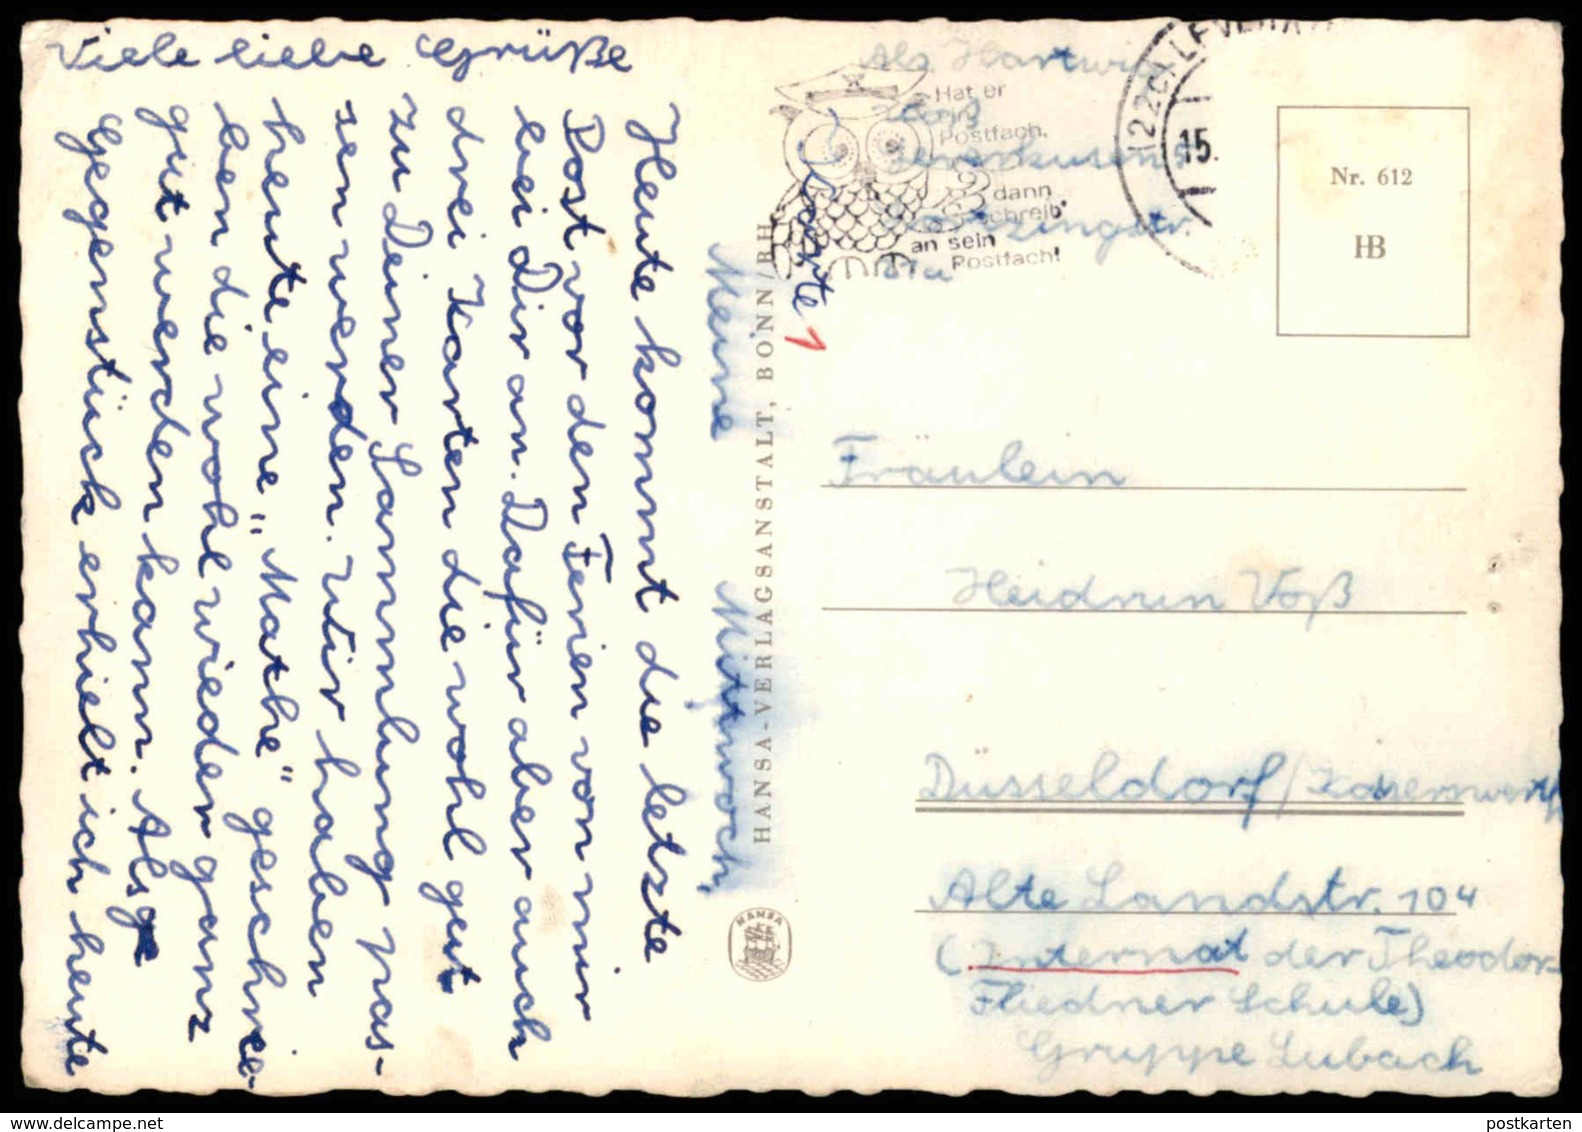 Viele liebe Grüße
Meine Mittwoch,
Heute kommt die letzte
Post vor den Ferien von mir
bei Dir an. Dafür aber auch
drei Karten die wohl gut
zu Deiner Sammlung pas-
sen werden. Wir haben
heute eine „Mathe" geschrie-
ben die wohl wieder ganz
gut werden kann. Als
Gegenstück erhielt ich heute
HANSA-VERLAGSANSTALT, BONN/RH
HANSA
Karte 1
Als Hartwig
Voß
Leverkusen
Hat er
ein
Postfach,
dann
schreib'
an sein
Postfach!
(22c) LEVERK
15.
Nr. 612
HB
Fräulein
Heidrun Voß
Düsseldorf / Kaiserswerth
Alte Landstr. 104
(Internat der Theodor-
Fliedner Schule)
Gruppe Lubach
postkarten